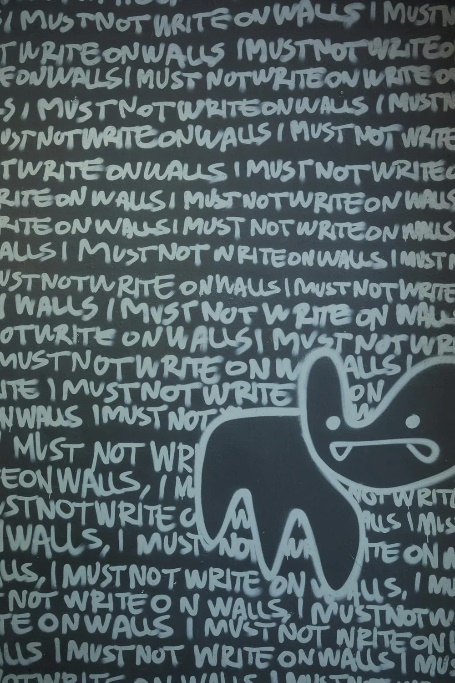 I MUST NOT WRITE ON WALLS I MUST
WRITE ON WALLS I MUST NOT WRITE
ON WALLS I MUST NOT WRITE ON WALLS
I MUST NOT WRITE ON WALLS I MUST
NOT WRITE ON WALLS I MUST NOT WRITE
WRITE ON WALLS I MUST NOT WRITE
ON WALLS I MUST NOT WRITE ON WALLS
ON WALLS I MUST NOT WRITE ON WALLS
I MUST NOT WRITE ON WALLS I MUST
NOT WRITE ON WALLS I MUST NOT WRITE
WALLS I MUST NOT WRITE ON WALLS
WRITE ON WALLS I MUST NOT WRITE
MUST NOT WRITE ON WALLS I
I MUST NOT WRITE ON
WALLS I MUST NOT
I MUST NOT
ON WALLS, I NOT WRITE
NOT WRITE WALLS I MUST
WALLS, I MUST NOT ON
I MUST NOT WRITE ON WALLS, I
NOT WRITE ON WALLS, I MUST NOT
ON WALLS I MUST NOT WRITE ON
I MUST NOT WRITE ON WALLS I